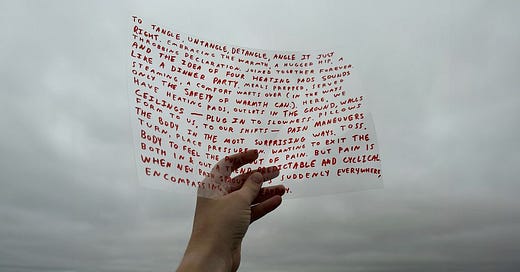 TO TANGLE, UNTANGLE, DETANGLE, ANGLE IT JUST
RIGHT. EMBRACING THE WARMTH, A HUGGED HIP, A
THROBBING DECLARATION. JOINED TOGETHER FOREVER.
AND THE IDEA OF FOUR HEATING PADS SOUNDS
LIKE A DINNER PARTY, MEALS PREPPED, SERVED
STEAMING, A COMFORT WAFTS OVER (IN THE WAYS
ONLY THE SAFETY OF WARMTH CAN). HERE, WE
HAVE HEATING PADS, OUTLETS IN THE GROUND, WALLS
CEILINGS — PLUG IN TO SLOWNESS. PILLOWS
FORM TO US, TO OUR SHIFTS — PAIN MANEUVERS
THE BODY IN THE MOST SURPRISING WAYS. TOSS,
TURN, PLACE PRESSURE ON, WANTING TO EXIT THE
BODY TO FEEL THE OUT OF PAIN. BUT PAIN IS
BOTH IN & OUT PREDICTABLE AND CYCLICAL
WHEN NEW PAIN SUDDENLY EVERYWHERE,
ENCOMPASSING